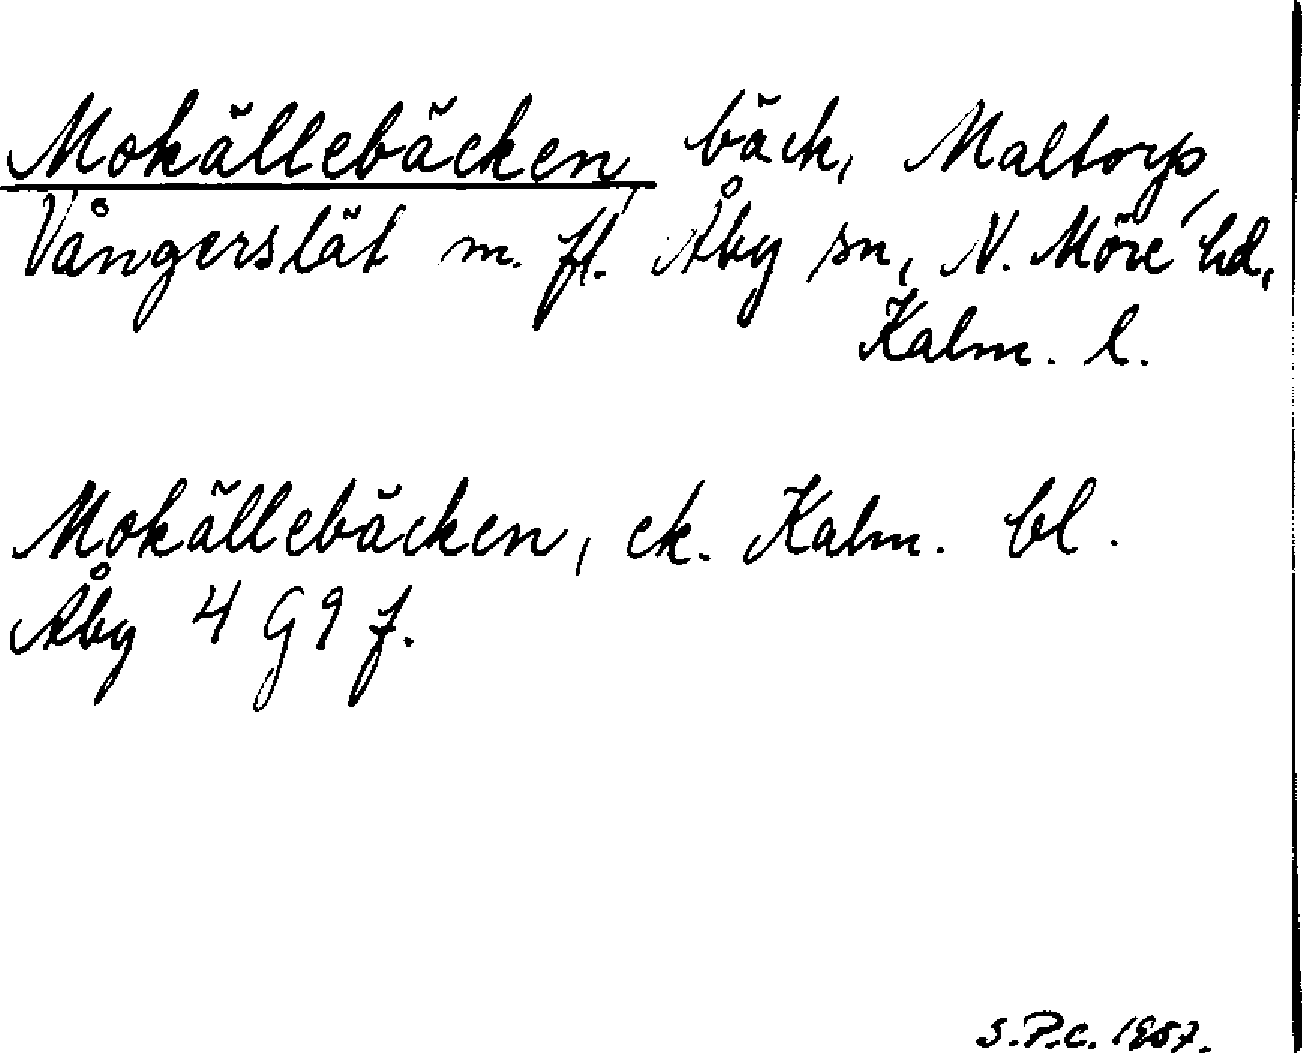 Mokällebäcken, bäck, Maltorp,
Vångerslät m. fl. Åby sn, N. Möre hd,
Kalm. l.
Mokällebäcken, ek. Kalm. bl.
Åby 4 G 9 f.
S.P.C. 1957.